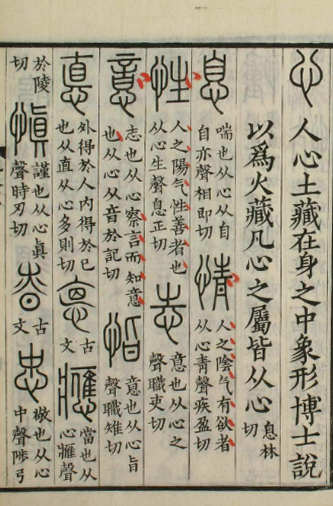 心 人心土藏在身之中象形博士說
以爲火藏凡心之屬皆从心 息林切
息 喘也从心从自自亦聲相即切 情 人之陰气有欲者从心靑聲疾盈切
性 人之陽气性善者也从心生聲息正切 志 意也从心之聲職吏切
意 志也从心察言而知意也从心从音於記切 恉 意也从心旨聲職雉切
悳 外得於人內得於己也从直从心多則切 㥁 古文 應 當也从心䧹聲
於陵切 愼 謹也从心眞聲時刃切 昚 古文 忠 敬也从心中聲陟弓